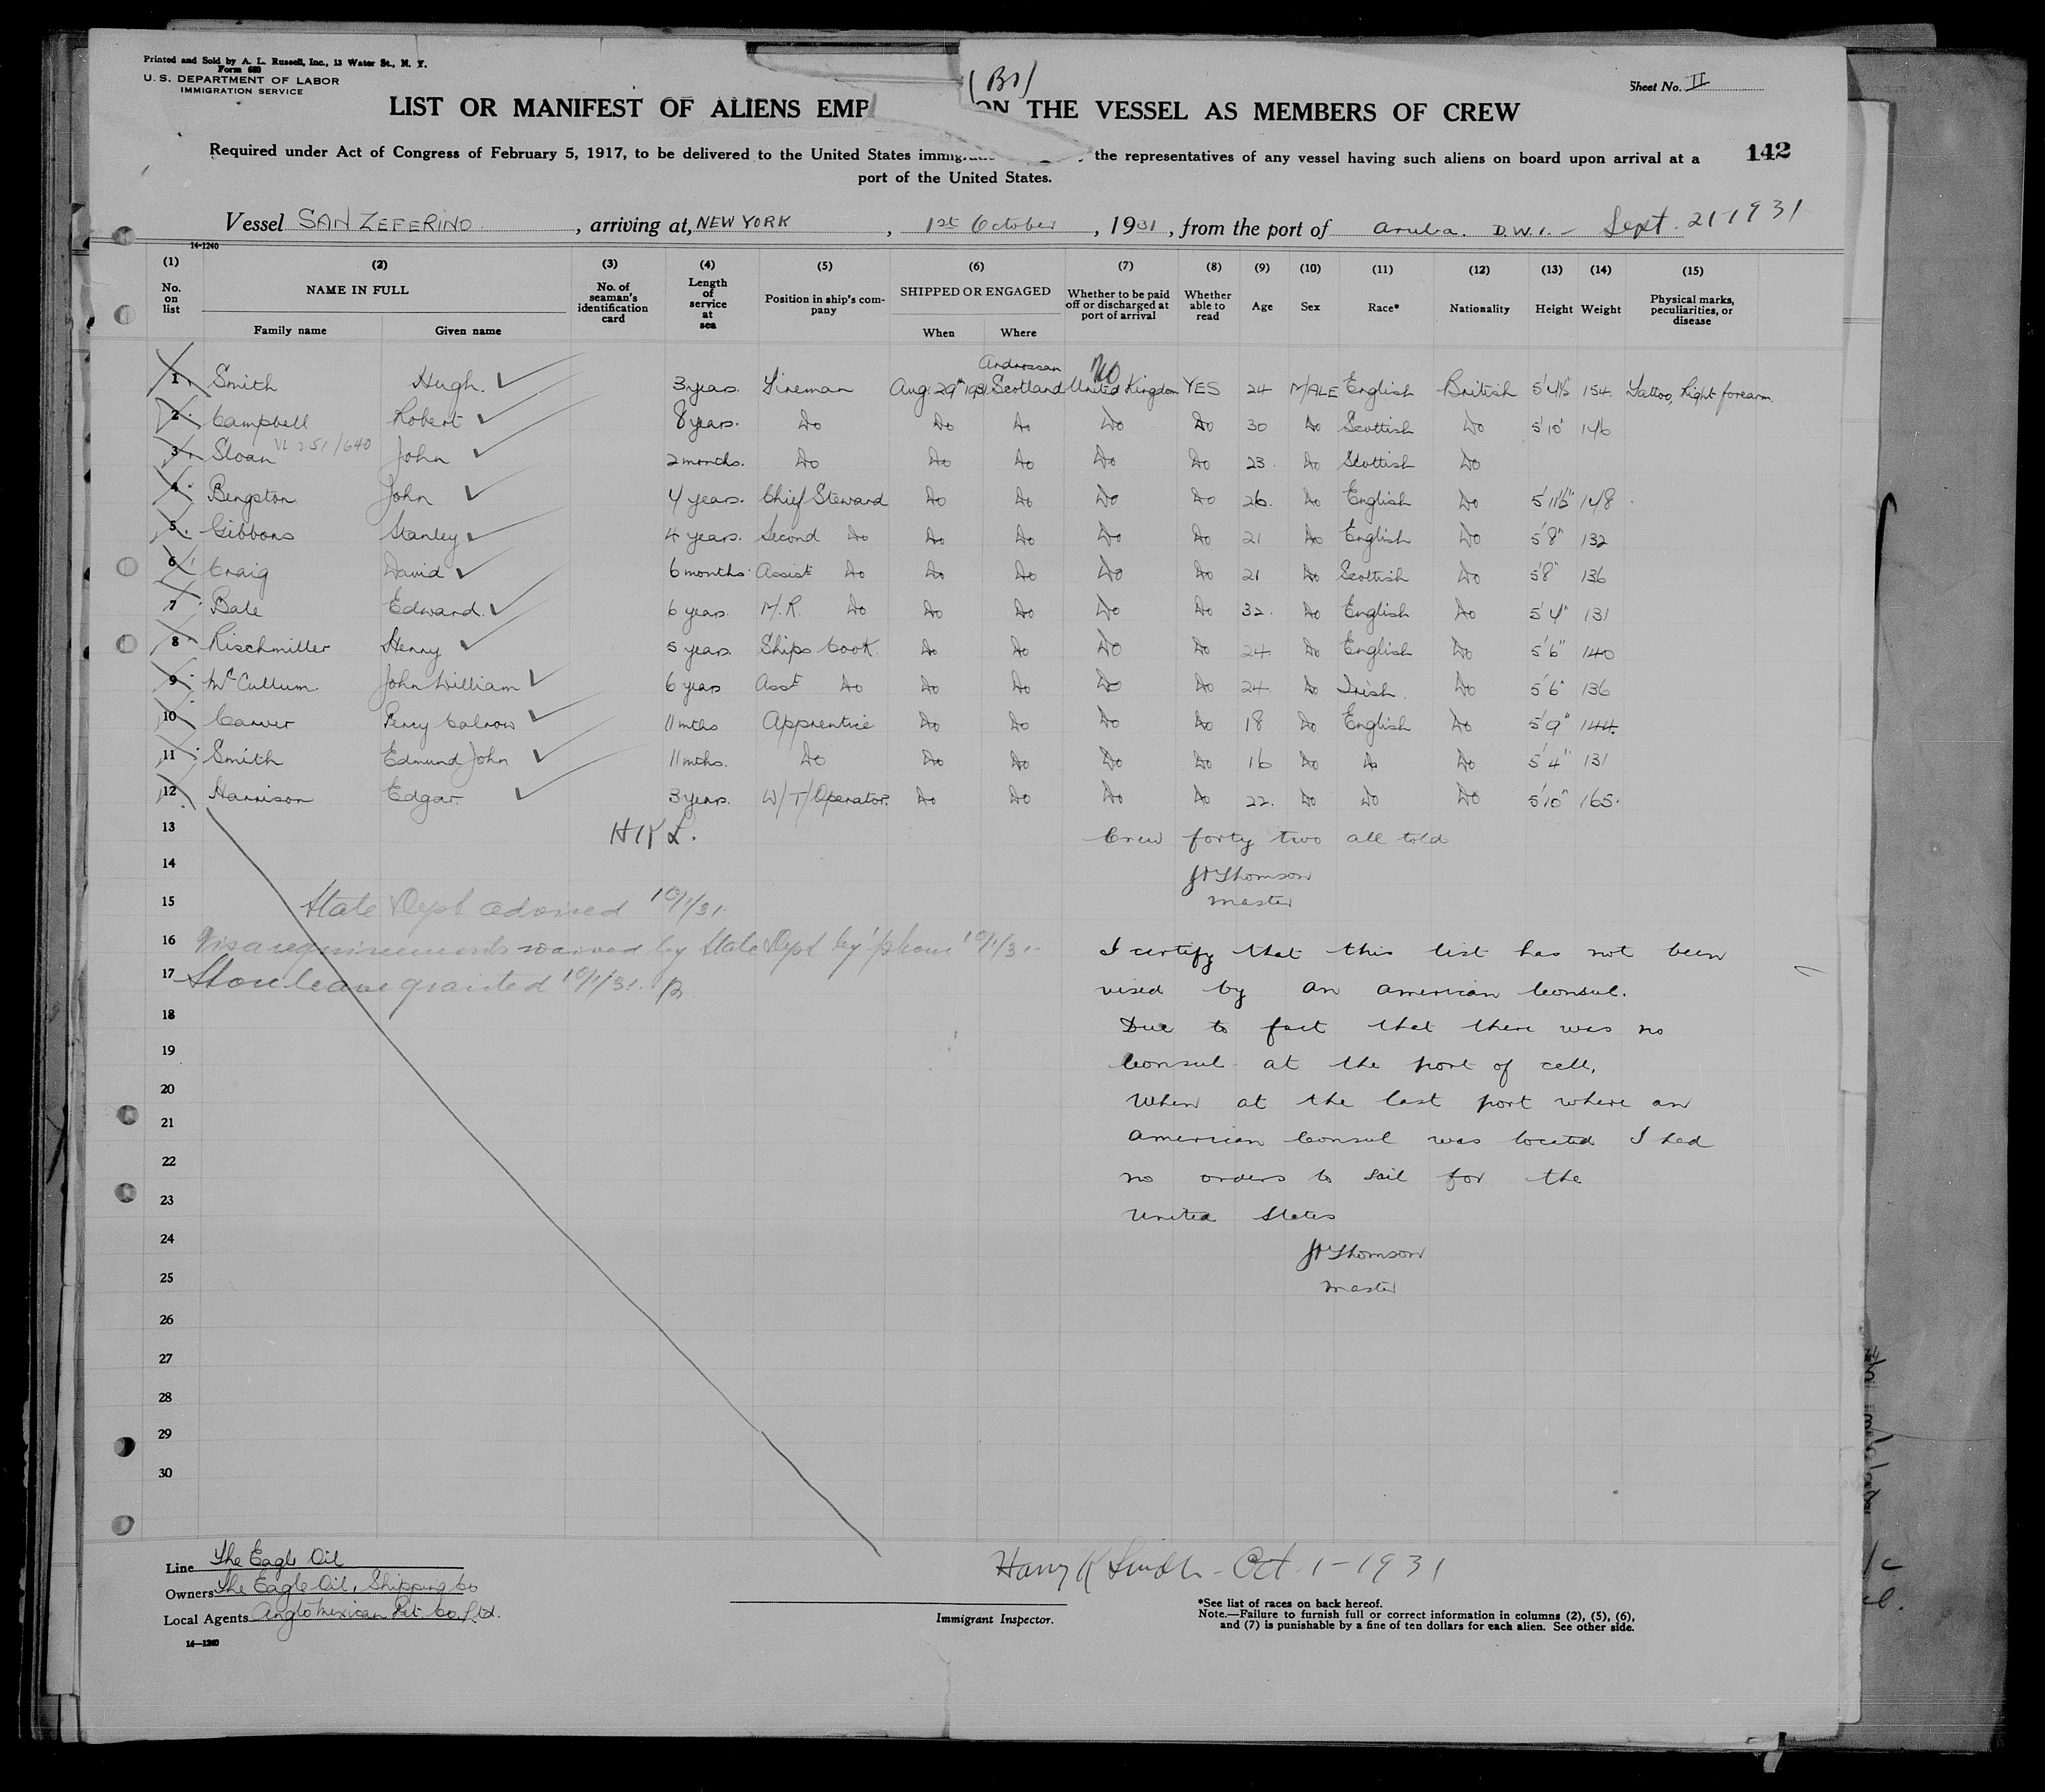 Printed and Sold by A. L. Russell, Inc., 13 Water St., N. Y.
Form 680
U. S. DEPARTMENT OF LABOR
IMMIGRATION SERVICE
(B1)
Sheet No. II
LIST OR MANIFEST OF ALIENS EMP ON THE VESSEL AS MEMBERS OF CREW
Required under Act of Congress of February 5, 1917, to be delivered to the United States the representatives of any vessel having such aliens on board upon arrival at a
142
port of the United States.
Vessel SAN ZEFERINO, arriving at, NEW YORK, 1st October, 1931, from the port of Aruba. D.W.I. - Sept. 21-1931
14-1240
(1) (2) (3) (4) (5) (6) (7) (8) (9) (10) (11) (12) (13) (14) (15)
No. on list NAME IN FULL Family name Given name No. of seaman's identification card Length of service at sea Position in ship's company SHIPPED OR ENGAGED When Where Whether to be paid off or discharged at port of arrival Whether able to read Age Sex Race* Nationality Height Weight Physical marks, peculiarities, or disease
Ardrossan NO
1 Smith Hugh. 3 years. Fireman Aug. 29th 1931 Scotland United Kingdom YES 24 MALE English British 5'4½ 154 Tattoo, Right forearm.
2 Campbell Robert 8 years. Do Do Do Do Do 30 Do Scottish Do 5'10" 146
VL 251/640
3 Sloan John 2 months. Do Do Do Do Do 23. Do Scottish Do
4 Bengston John 4 years. Chief Steward Do Do Do Do 26. Do English Do 5'11½" 148
5 Gibbons Stanley 4 years. Second Do Do Do Do Do 21 Do English Do 5'8" 132
6 Craig David 6 months Assist Do Do Do Do Do 21 Do Scottish Do 5'8" 136
7 Bale Edward. 6 years. M.R. Do Do Do Do Do 32. Do English Do 5'4" 131
8 Rischmiller Henry 5 years. Ships Cook. Do Do Do Do 24 Do English Do 5'6" 140
9 McCullum John William 6 years Asst Do Do Do Do Do 24. Do Irish. Do 5'6" 136
10 Carver Percy Calrow 11 mths Apprentice Do Do Do Do 18 Do English Do 5'9" 144.
11 Smith Edmund John 11 mths. Do Do Do Do Do 16 Do Do Do 5'4" 131
12 Harrison Edgar. 3 years. W/T/Operator. Do Do Do Do 22. Do Do Do 5'10" 165.
13 HKL. Crew forty two all told
14 JThomson
15 State Dept advised 10/1/31. Master
16 Visa requirements waived by State Dept by 'phone 10/1/31. I certify that this list has not been
17 Shore leave granted 10/1/31. vised by an American Consul.
18 Due to fact that there was no
19 Consul at the port of call,
20 When at the last port where an
21 American Consul was located I had
22 no orders to sail for the
23 United States
24 JThomson
25 Master
26
27
28
29
30
Line The Eagle Oil
Owners The Eagle Oil, Shipping Co
Local Agents Anglo Mexican Pet. Co. Ltd.
14-1240
Harry K - Oct. 1-1931
Immigrant Inspector.
*See list of races on back hereof.
Note.—Failure to furnish full or correct information in columns (2), (5), (6),
and (7) is punishable by a fine of ten dollars for each alien. See other side.